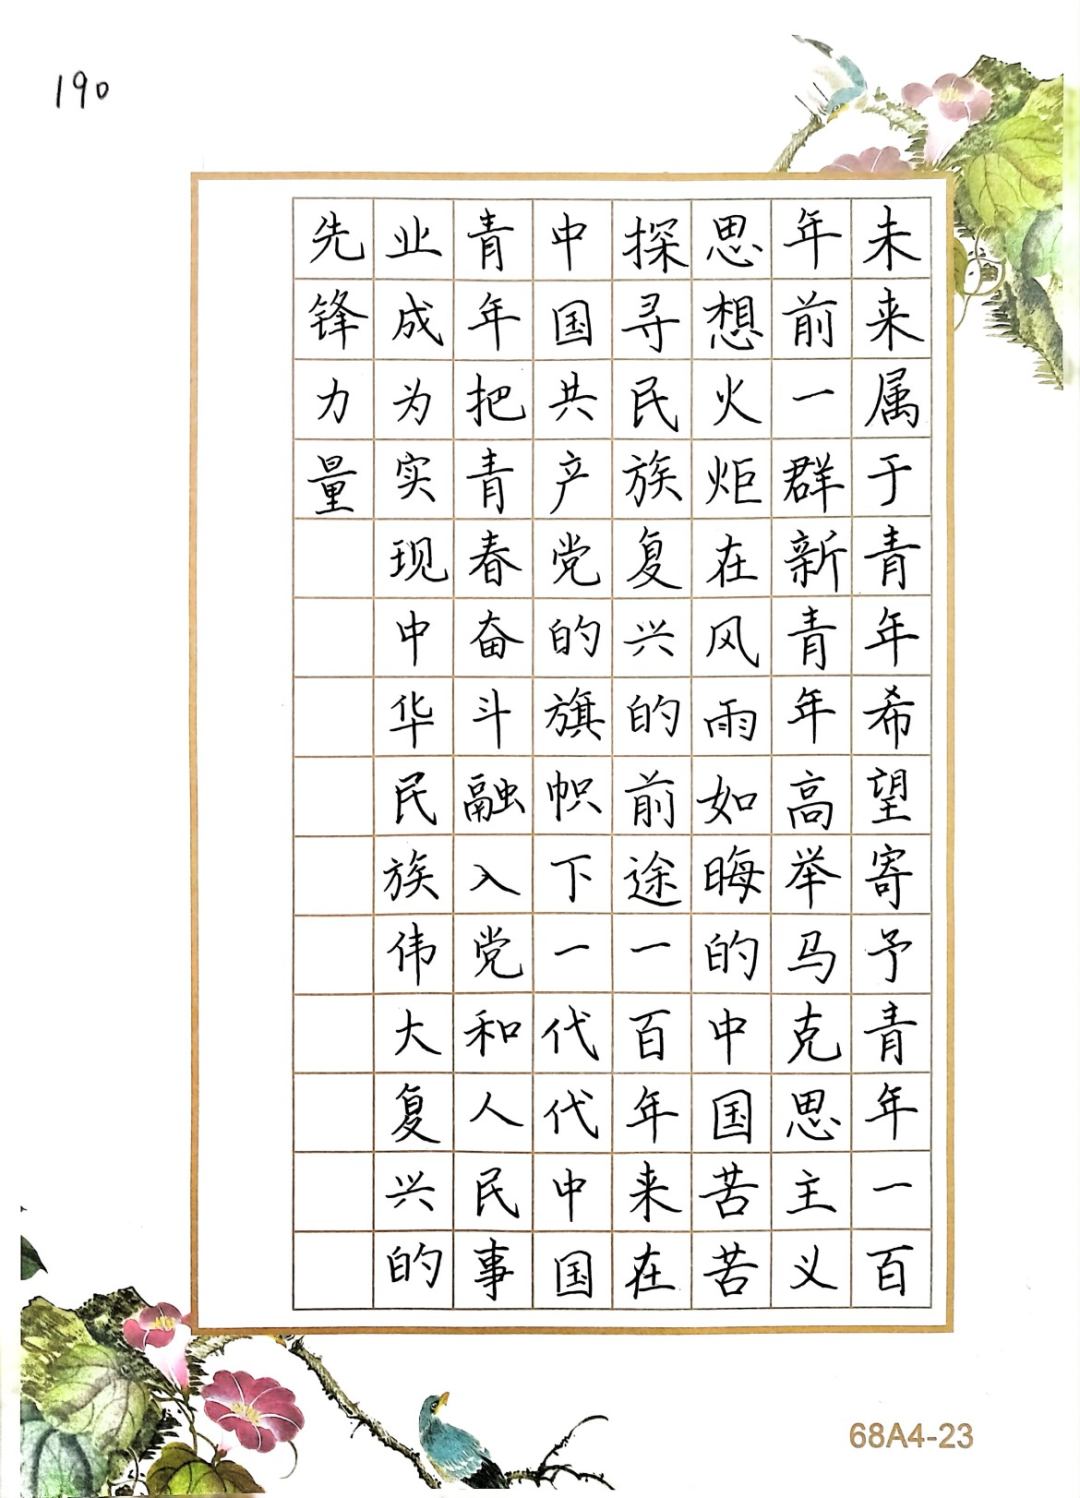 190
未来属于青年希望寄予青年一百
年前一群新青年高举马克思主义
思想火炬在风雨如晦的中国苦苦
探寻民族复兴的前途一百年来在
中国共产党的旗帜下一代代中国
青年把青春奋斗融入党和人民事
业成为实现中华民族伟大复兴的
先锋力量
68A4-23